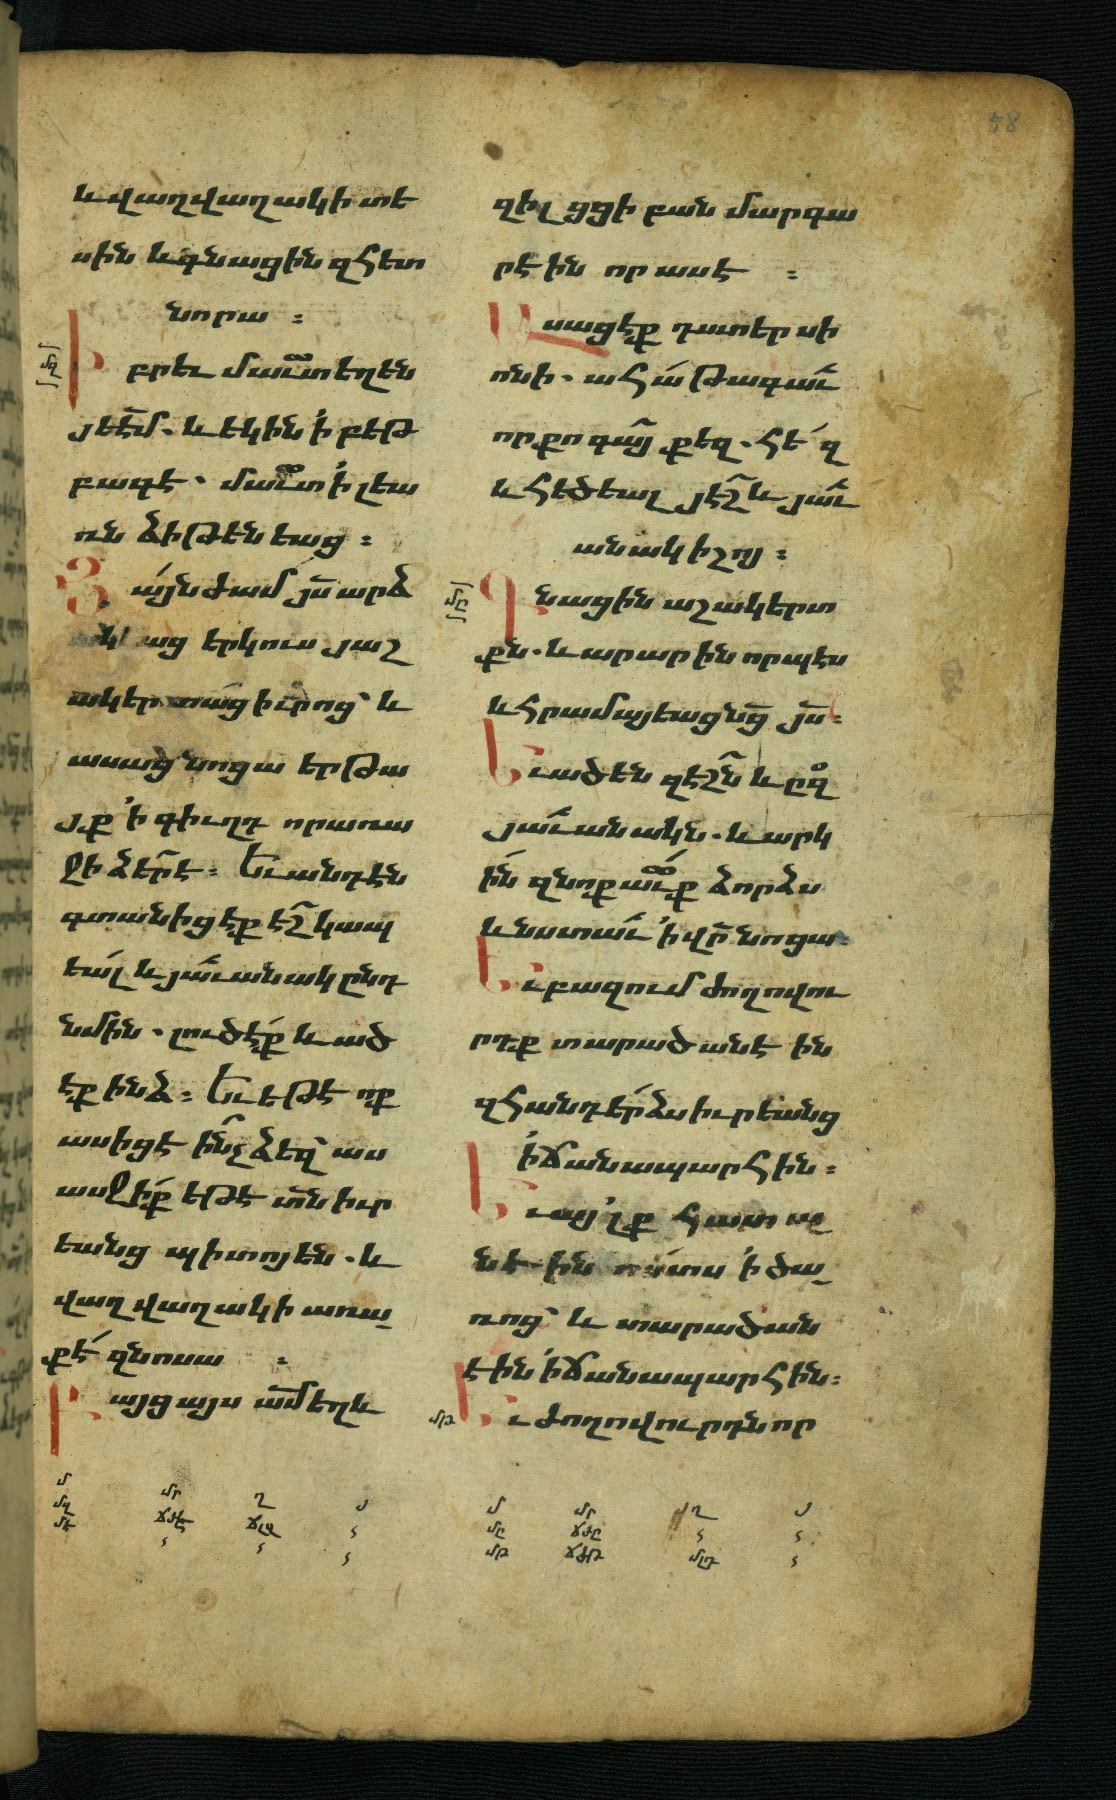 58
և վաղվաղակի տե
սին և գնացին զհետ
նորա ։
բրեւ մաւտ եղեն
յեէ̄մ . և եկին ՚ի բեթ
բագէ . մաւտ ՚ի լեա
ռն ձիթենեաց ։
Յայնժամ յս̄ արձ
ակեաց երկուս յաշ
ակերտաց իւրոց՝ և
ասաց նոցա երթա
յք ՚ի գիւղդ որ առա
ջի ձեր է ։ Եւ անդէն
գտանիցէք էշ կապ
եալ և յաւանակ ընդ
նմին . լուծէք և ած
էք ինձ ։ Եւ եթէ ոք
ասիցէ ինչ ձեզ՝ աս
ասջիք եթէ տն̄ իւր
եանց պիտոյ են . և
վաղվաղակի առա
քէ զնոսա ։
Բայց այս ամ̄ եղև
զի լցցի բան մարգա
րէին որ ասէ ։
Ասացէք դստեր սի
ոնի . ահա թագաւ
որ քո գայ քեզ . հեզ
և հեծեալ յէշ և յաւ
անակ իշոյ ։
Գնացին աշակերտ
քն . և արարին որպէս
և հրամայեաց նց̄ յս̄ ։
Եւ ածեն զէշն և ընդ
յաւանակն . և արկ
ին զնոքաւք ձորձս
և նստաւ ՚ի վր̄ նոցա ։
Եւ բազում ժողովու
րդք տարածանէին
զհանդերձս իւրեանց
՚ի ճանապարհին ։
Եւ այլք հատա
նէին ոստս ՚ի ծա
ռոց՝ և տարածան
էին ՚ի ճանապարհին ։
Եւ ժողովուրդն որ